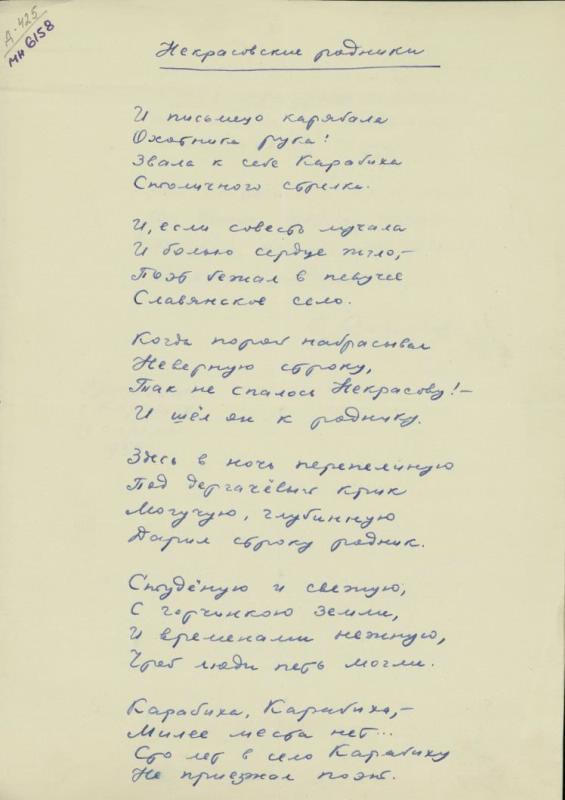 А. 425
МН 6158
Некрасовские родники
И письмецо карябала
Охотника рука!
Звала к себе Карабиха
Столичного стрелка.
И, если совесть мучала
И болью сердце жгло,-
Поэт бежал в певучее
Славянское село.
Когда порой набрасывал
Неверную строку,
Так не спалось Некрасову!-
И шёл он к роднику.
Здесь в ночь перепелиную
Под дергачёвый крик
Могучую, глубинную
Дарил строку родник.
Студёную и свежую,
С горчинкою земли,
И временами нежную,
Чтоб люди петь могли.
Карабиха, Карабиха,-
Милее места нет...
Сто лет в село Карабиху
Не приезжал поэт.